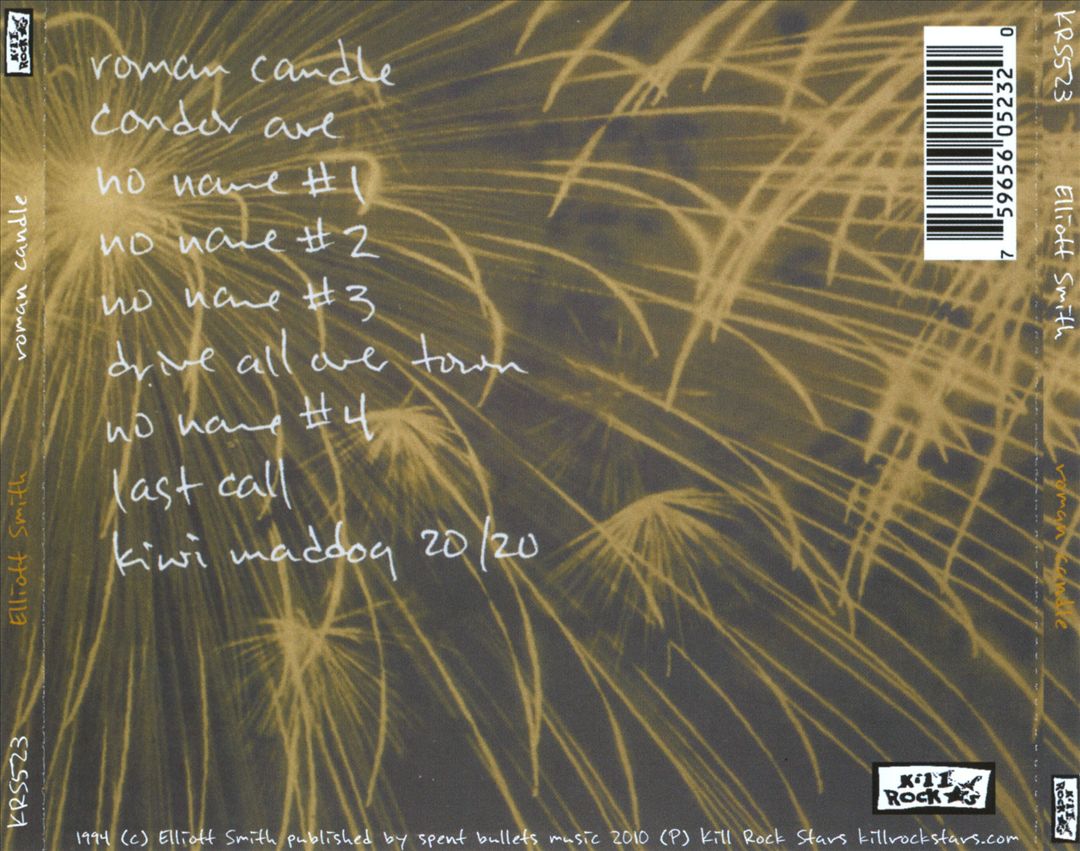 roman candle
condor ave
no name #1
no name #2
no name #3
drive all over town
no name #4
last call
kiwi maddog 20/20
7 59656 05232 0
Kill Rock
roman candle
Elliott Smith
KRS523
KRS523
Elliott Smith
roman candle
Kill Rock
Kill Rock
1994 (c) Elliott Smith published by spent bullets music 2010 (P) Kill Rock Stars killrockstars.com